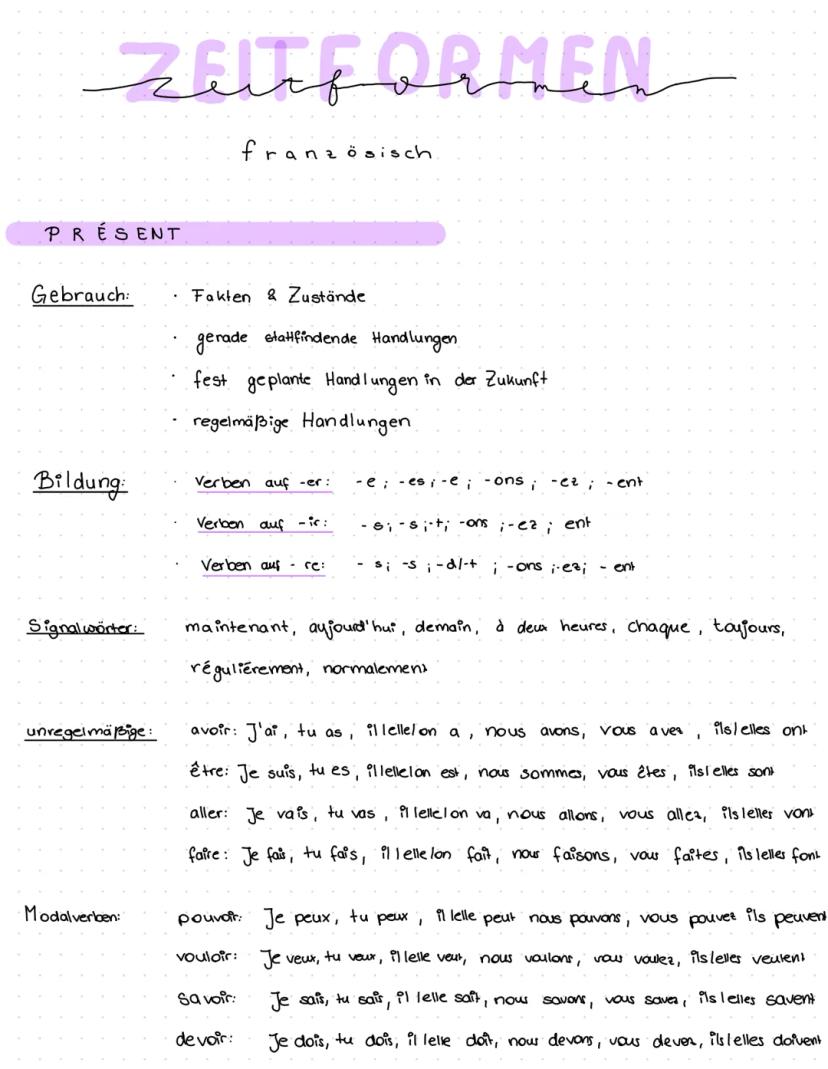 ZEITFORMEN
zeitformen
französisch
PRÉSENT
Gebrauch: · Fakten & Zustände
· gerade stattfindende Handlungen
· fest geplante Handlungen in der Zukunft
· regelmäßige Handlungen
Bildung: · Verben auf -er: -e ; -es ; -e ; -ons ; -ez ; -ent
· Verben auf -ir: -s ; -s ; -t ; -ons ; -ez ; ent
· Verben auf -re: -s ; -s ; -d/-t ; -ons ; -ez ; -ent
Signalwörter: maintenant, aujourd'hui, demain, à deux heures, chaque, toujours,
réguliérement, normalement
unregelmäßige: avoir: J'ai, tu as, il/elle/on a, nous avons, vous avez, ils/elles ont
être: Je suis, tu es, il/elle/on est, nous sommes, vous êtes, ils/elles sont
aller: Je vais, tu vas, il/elle/on va, nous allons, vous allez, ils/elles vont
faire: Je fais, tu fais, il/elle/on fait, nous faisons, vous faites, ils/elles font
Modalverben: pouvoir: Je peux, tu peux, il/elle peut nous pouvons, vous pouvez ils peuvent
vouloir: Je veux, tu veux, il/elle veut, nous voulons, vous voulez, ils/elles veulent
savoir: Je sais, tu sais, il/elle sait, nous savons, vous savez, ils/elles savent
devoir: Je dois, tu dois, il/elle doit, nous devons, vous devez, ils/elles doivent